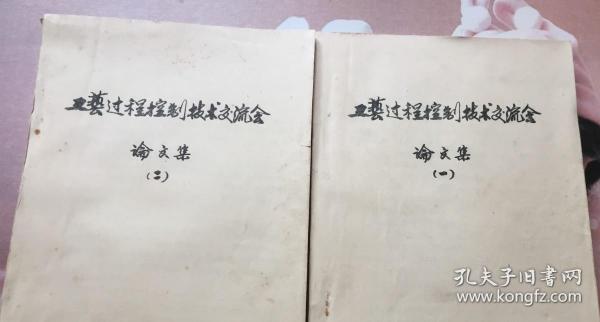 工藝过程控制技术交流会
论文集
(二)
工藝过程控制技术交流会
论文集
(一)
孔夫子旧书网
www.kongfz.com